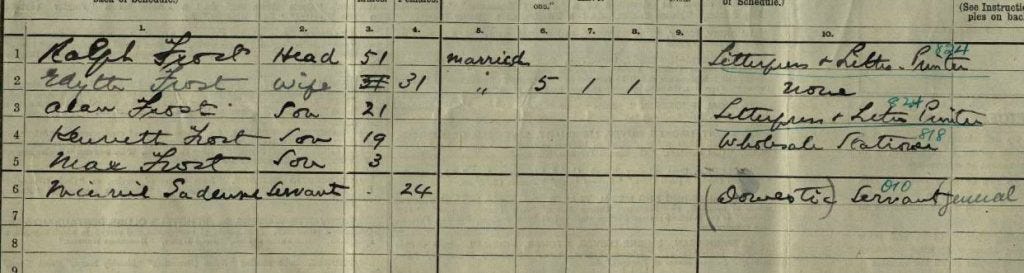 of Schedule.)
ones."
of Schedule.)
(See Instructi
ples on bac
1. 2. 3. 4. 5. 6. 7. 8. 9. 10.
1 Ralph Frost Head 51 married Letterpress & Litho. Printer 824
2 Edyth Frost Wife 31 " 5 1 1 none
3 Alan Frost Son 21 Letterpress & Litho Printer 824
4 Kenneth Frost Son 19 Wholesale Stationer 818
5 Max Frost Son 3
6 Minnie Servant 24 (Domestic) Servant general 010
7
8
9